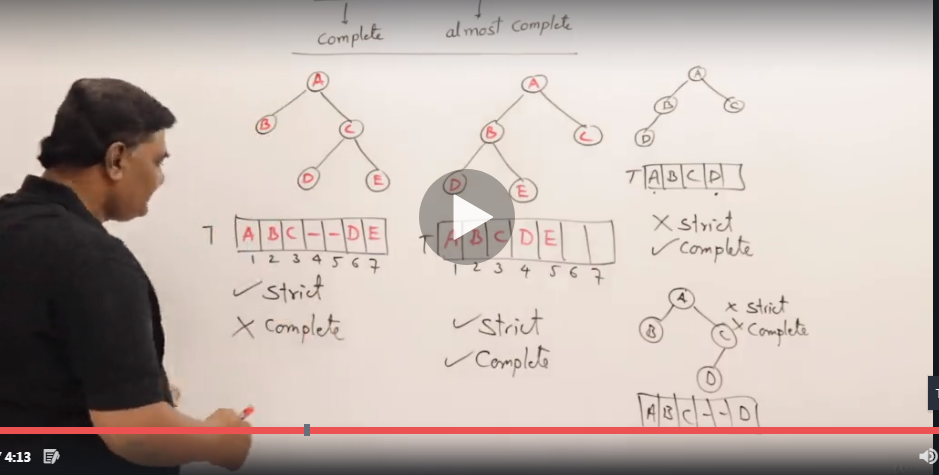 complete
almost complete
A
B
C
D
E
T
A B C - - D E
1 2 3 4 5 6 7
✓ Strict
X Complete
A
B
C
D
E
T
A B C D E
1 2 3 4 5 6 7
✓ Strict
✓ Complete
A
B
C
D
T A B C D
X Strict
✓ Complete
A
B
C
D
X Strict
X Complete
A B C - - D
/ 4:13